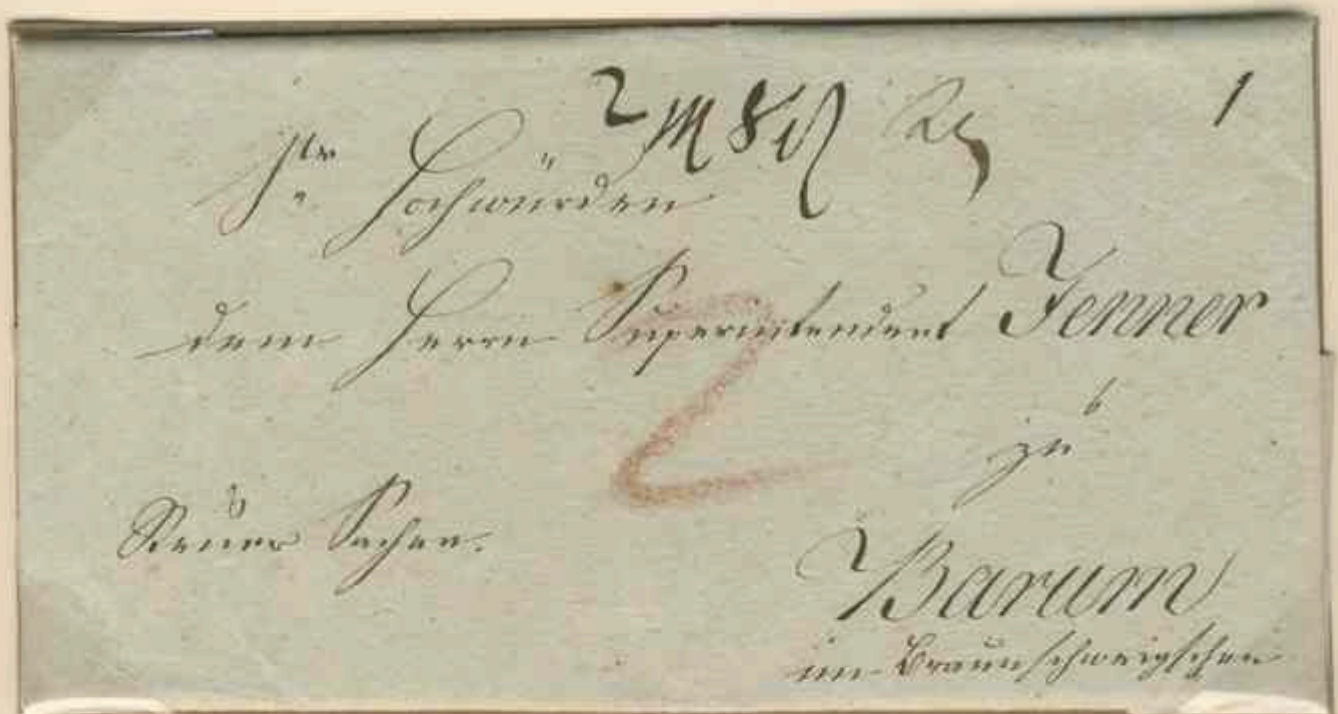 2 1
Sr Hochwürden
dem Herrn Superintendent Jenner
zu
2
Steuer Sachen.
Barum
im Braunschweigschen